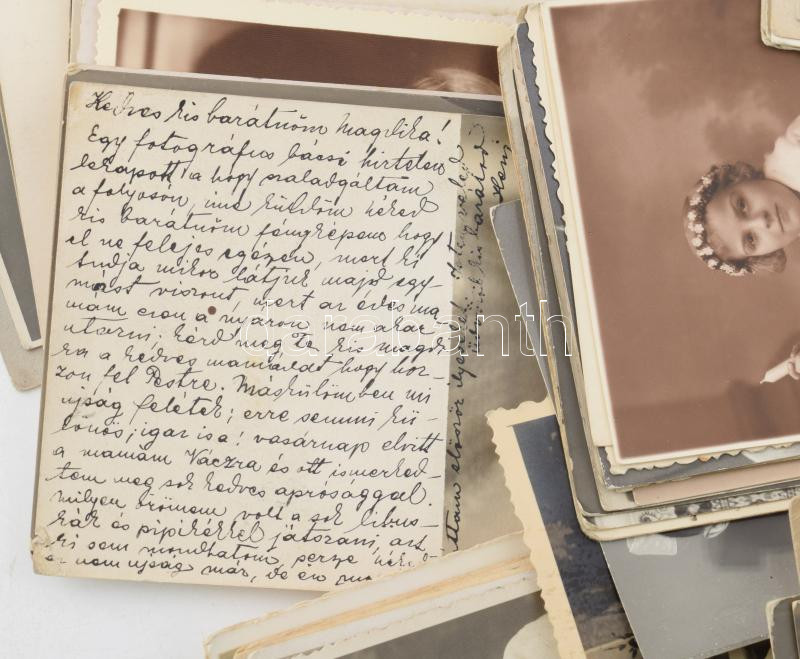 Kedves kis barátnőm Magdika!
Egy fotográfus bácsi hirtelen
lekapott a hogy szaladgáltam
a folyosón, ime küldöm néked
kis barátnőm fényképem hogy
el ne felejts egészen, mert ki
tudja mikor látjuk majd egy-
mást viszont, mert az édes ma
mám cson a nyáron nem akar
utazni; kérd meg Te kis Magdi
ka a kedves mamádat hogy hoz-
zon fel Pestre. Máskülömben mi
ujság felétek; erre semmi kü-
lönös; igaz is a! vasárnap elvitt
a mamám Váczra és ott ismerked-
tem meg sok kedves aprósággal.
milyen örömem volt a sok libus-
kák és pipikékkel játszani, azt
ki sem mondhatom, persze néked
ez nem ujság már, de én
láttam először ilyeneket
kis barátnőd
darabanth